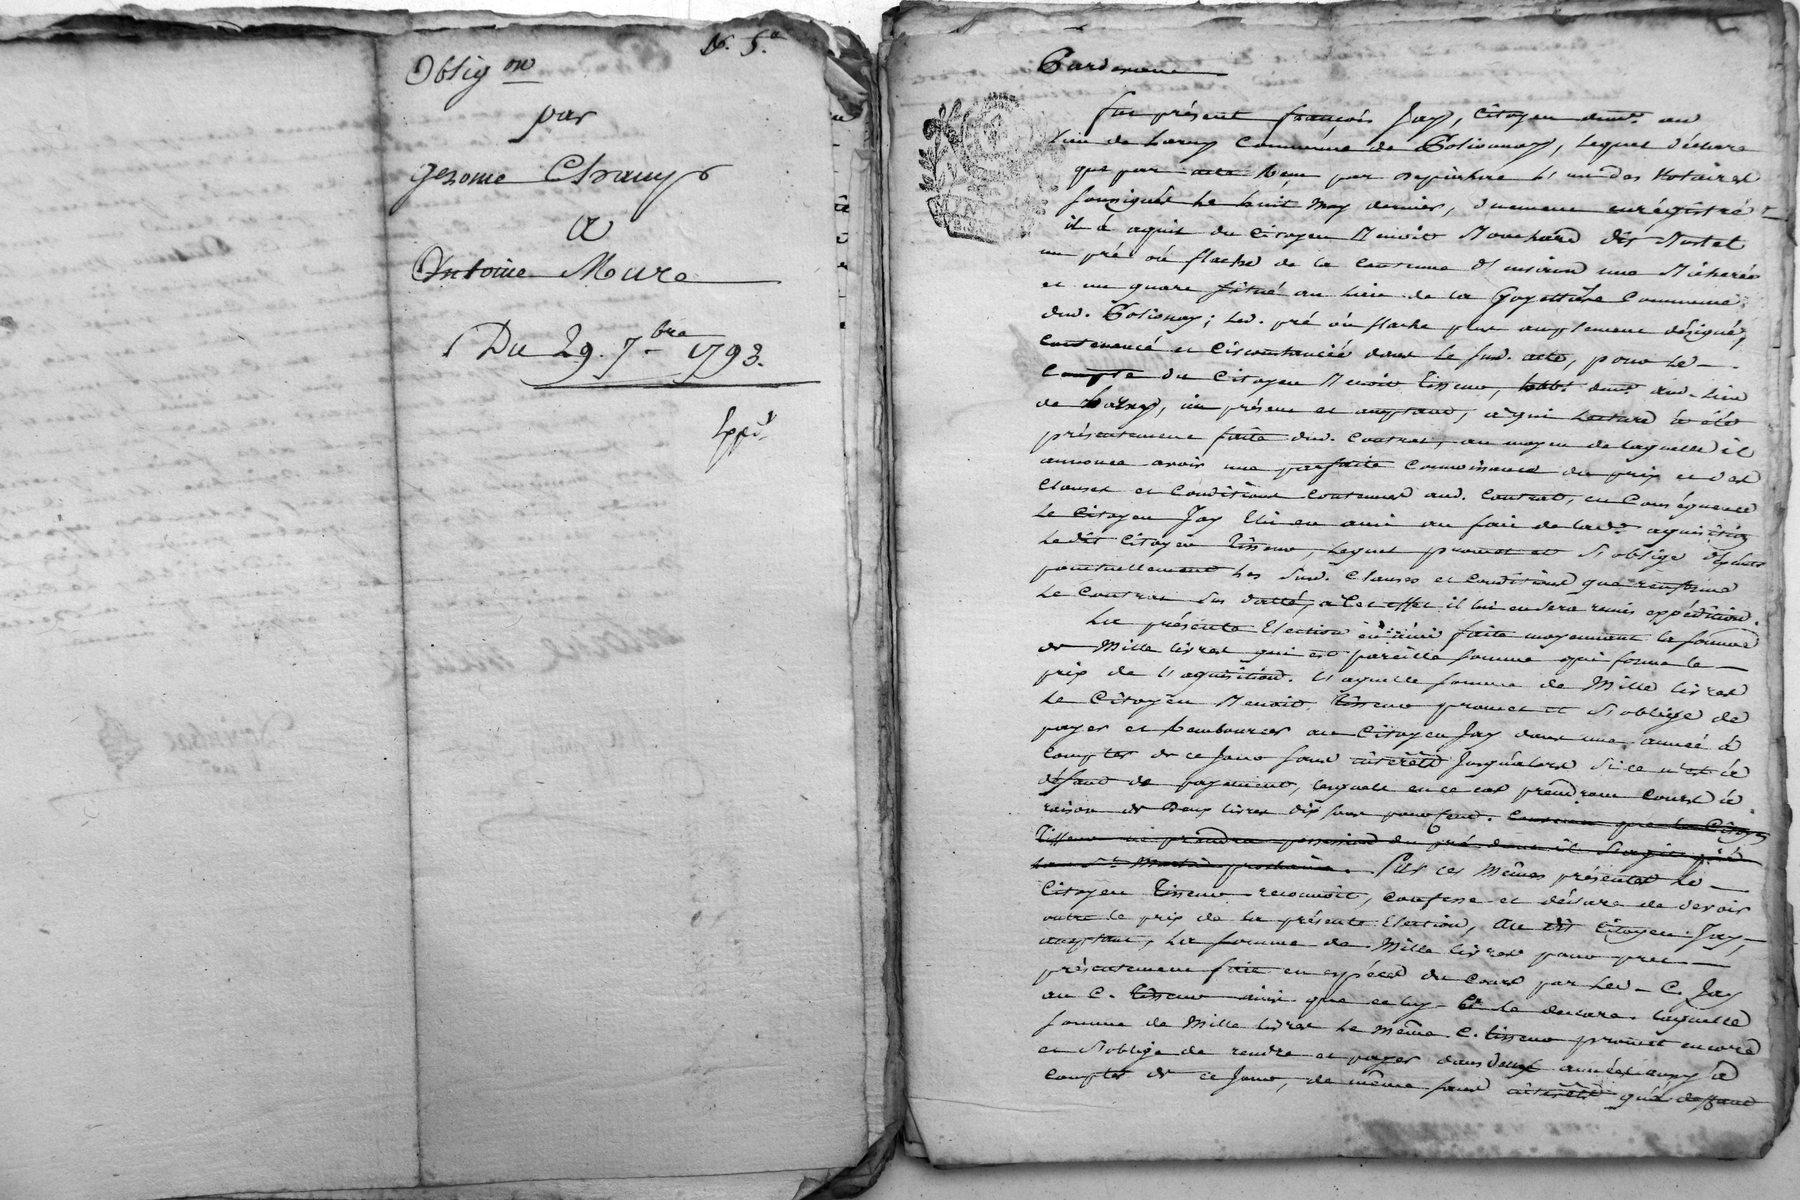 N.° 5.e
Oblig on
par
Jerome Chauvy
a
Antoine Mure
Du 29. 7bre 1793.
Exp.d
Pardevant
fut présent françois Jay, Citoyen demt. au
Lieu de Commune de Polionnay, Lequel déclare
que par acte Reçu par Notaires
soussignés Le huit May dernier, duement enrégistré
il à aquis du Citoyen Benoit dit
un pré où flache de la Contenue d'environ une Bicherée
et un quart situé au Lieu de la Goyettière Commune
dud. Polionay; Led. pré où flache plus amplement désigné,
contenancé et Circonstancié dans Le sud. acte, pour Le
Compte du Citoyen Benoit Tisseur, demt. aud. Lieu
de ici présent et acceptant, à qui Lecture à été
présentement faite dud. Contrat, au moyen de laquelle il
annonce avoir une parfaite Connoissance du prix et des
Clauses et Conditions Contenues aud. Contrat, en Conséquence
Le Citoyen Jay Elit en ami au fait de lad.e aquisition
Ledit Citoyen Tisseur, Lequel promet et s'oblige
ponctuellement Les sud. Clauses et Conditions que renferme
Le Contrat sus datté, a Cet effet il lui en sera remis expédition.
La présente Election en ami faite moyennant la somme
de Mille livres qui est pareille somme qui forme le
prix de l'aquisition. Laquelle somme de Mille livres
Le Citoyen Benoit Tisseur promet et s'oblige de
payer et Rembourcer au Citoyen Jay dans une année à
Compter de ce Jour sans intérêts Jusqu'alors si ce n'est à
défaut de payement, lesquels en ce cas prendront Cours à
raison de Deux livres dix sous pour Cent. Convenu que le Citoyen
Tisseur ne prendra possession du pré dont il s'agit qu'à
la St. Martin prochaine. Par ces mêmes présentes Le
Citoyen Tisseur reconnoit, Confesse et déclare de devoir
outre le prix de la présente Election, Au dit Citoyen Jay,
acceptant, La somme de Mille livres pour pret
présentement fait en espéces du Cours par Led. C. Jay
au C. Tisseur ainsi que ce luy Cy Le déclare. Laquelle
somme de Mille livres Le même C. Tisseur promet encore
et s'oblige de rendre et payer dans Deux années aussy à
Compter de ce Jour, de même sans intérêts qu'à deffaut